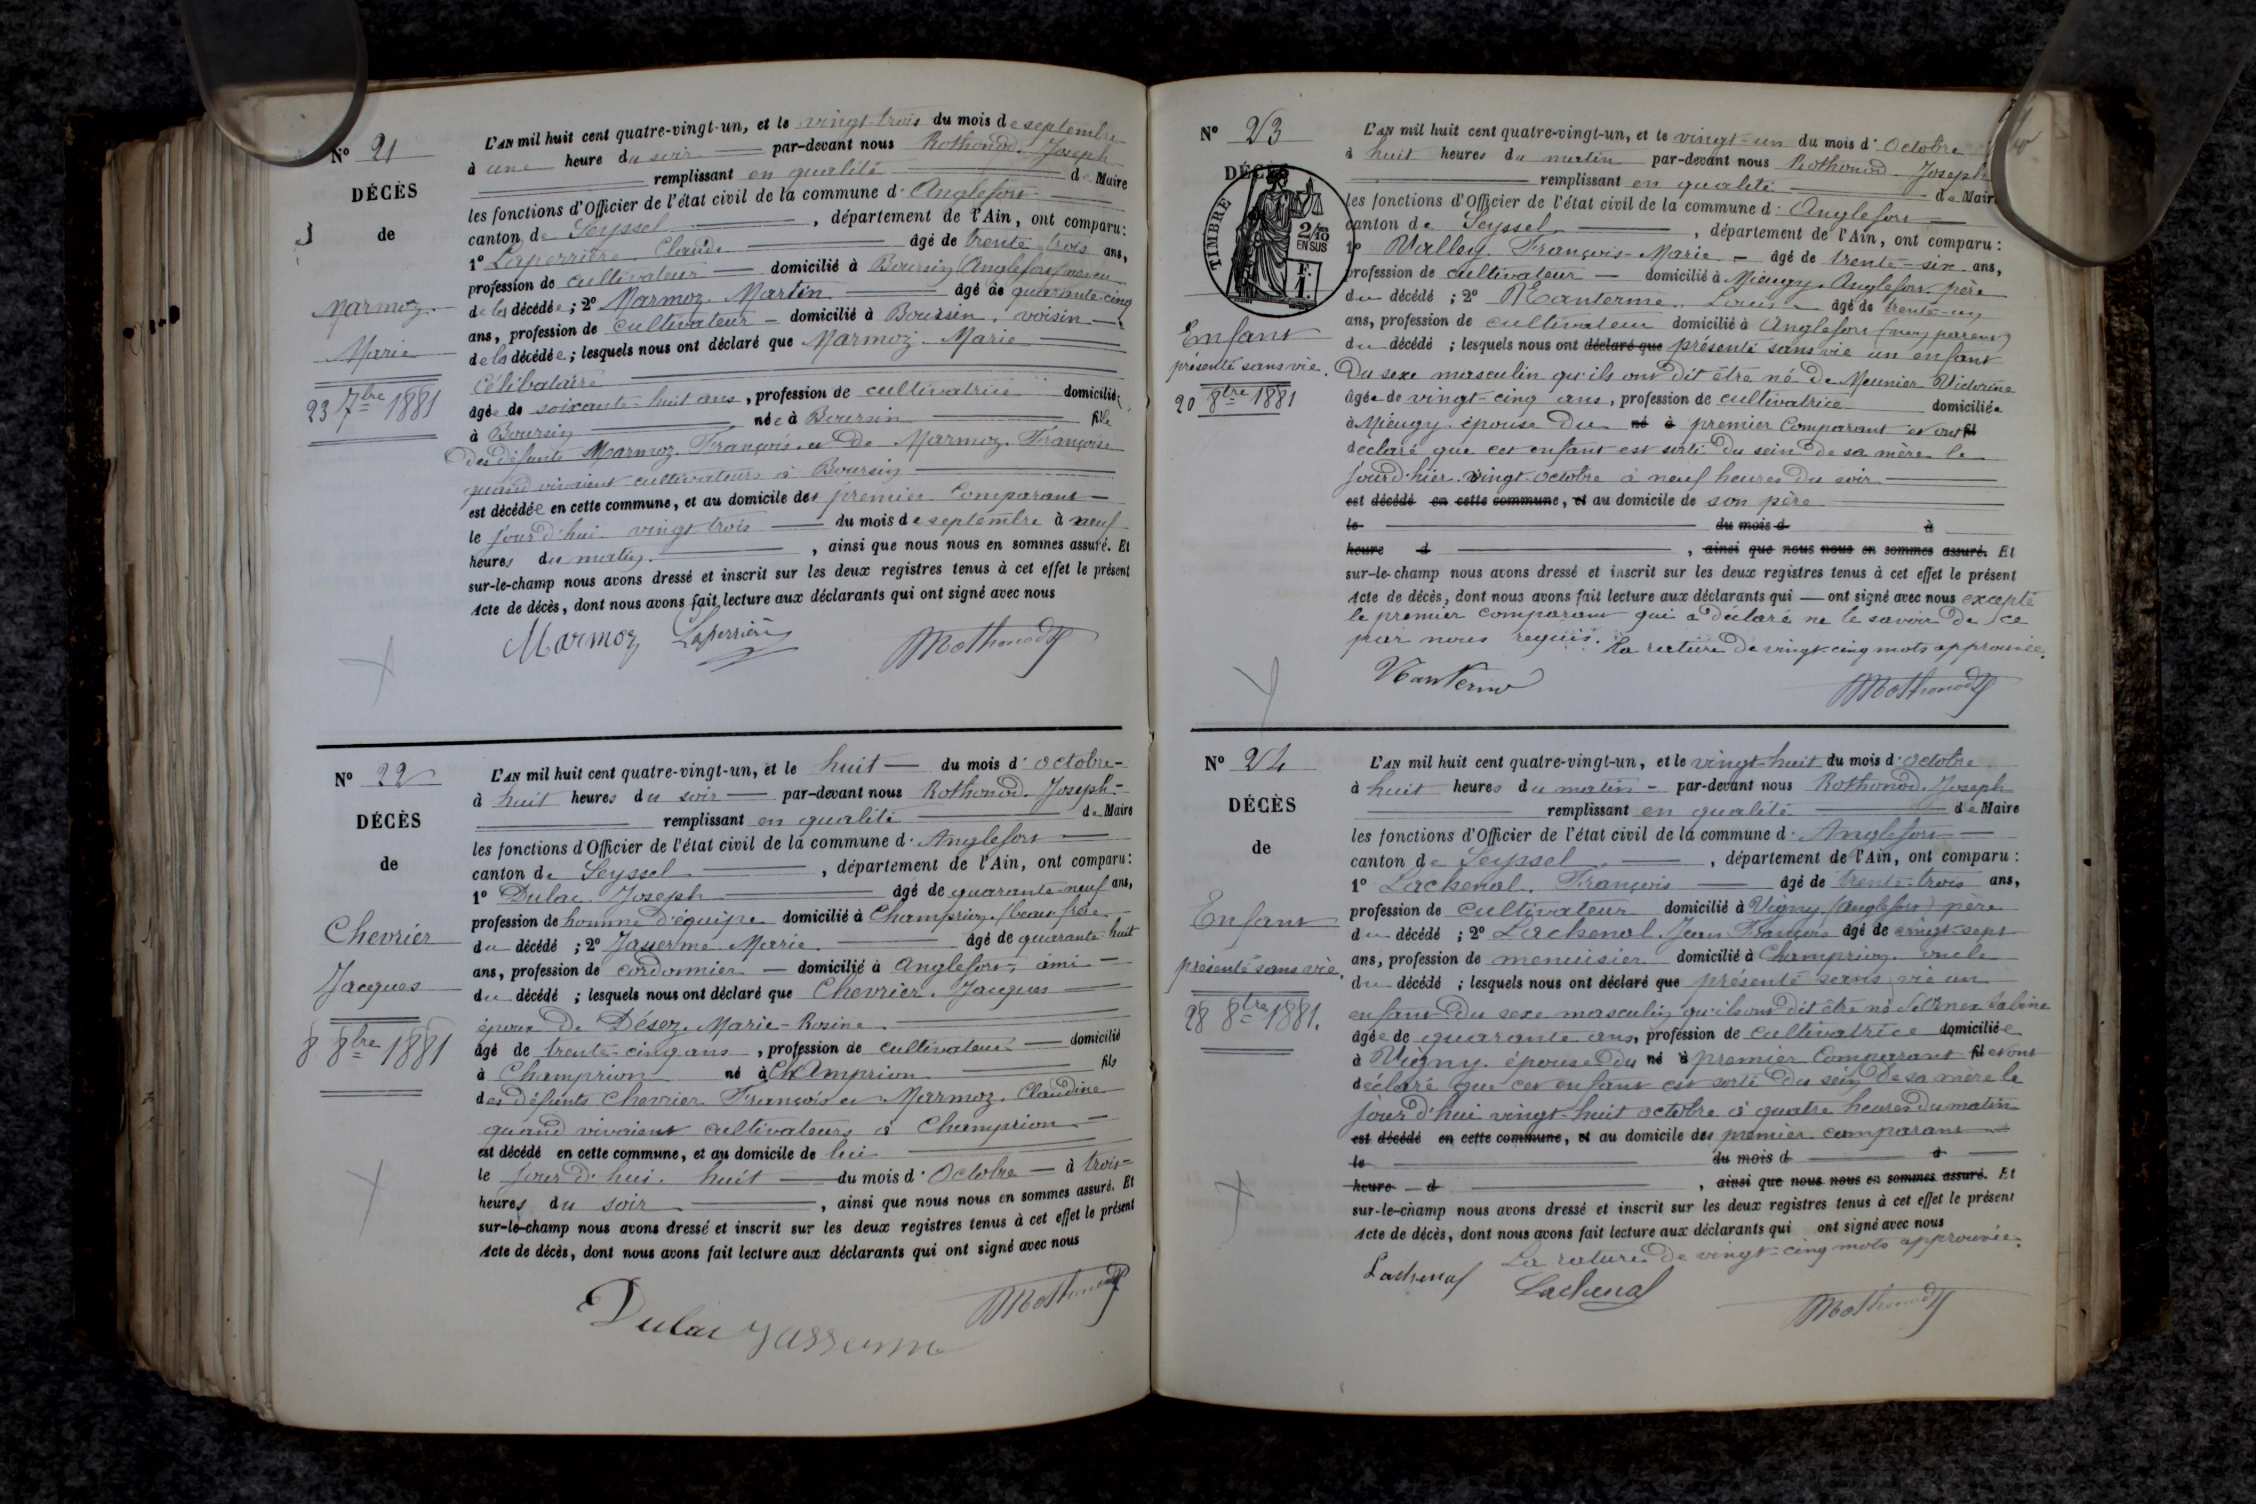 N° 21
DÉCÈS
de
Marmoz
Marie
23 7bre 1881
L'AN mil huit cent quatre-vingt-un, et le vingt-trois du mois de septembre
à une heure du soir par-devant nous Rothonod Joseph
remplissant en qualité de Maire
les fonctions d'Officier de l'état civil de la commune d'Anglefort
canton de Seyssel, département de l'Ain, ont comparu:
1° Laperrière Claude âgé de trente trois ans,
profession de cultivateur domicilié à Boursin (Anglefort) neveu
de la décédée; 2° Marmoz Martin âgé de quarante-cinq
ans, profession de cultivateur domicilié à Boursin, voisin
de la décédée; lesquels nous ont déclaré que Marmoz Marie
Célibataire
âgée de soixante-huit ans, profession de cultivatrice domiciliée
à Boursin née à Boursin fille
des défunts Marmoz François et de Marmoz Françoise
quand vivaient cultivateurs à Boursin
est décédée en cette commune, et au domicile des premier Comparant
le jour d'hui vingt trois du mois de septembre à neuf
heures du matin, ainsi que nous nous en sommes assuré. Et
sur-le-champ nous avons dressé et inscrit sur les deux registres tenus à cet effet le présent
Acte de décès, dont nous avons fait lecture aux déclarants qui ont signé avec nous
Marmoz Laperrière Rothonod
N° 22
DÉCÈS
de
Chevrier
Jacques
8 8bre 1881
L'AN mil huit cent quatre-vingt-un, et le huit du mois d'octobre
à huit heures du soir par-devant nous Rothonod Joseph
remplissant en qualité de Maire
les fonctions d'Officier de l'état civil de la commune d'Anglefort
canton de Seyssel, département de l'Ain, ont comparu:
1° Dulac Joseph âgé de quarante-neuf ans,
profession de homme d'équipe domicilié à Champrion, (beau frère
du décédé; 2° Jasserme Marie âgé de quarante-huit
ans, profession de cordonnier domicilié à Anglefort, ami
du décédé; lesquels nous ont déclaré que Chevrier Jacques
époux de Désoz Marie-Rosine
âgé de trente-cinq ans, profession de cultivateur domicilié
à Champrion né à Champrion fils
des défunts Chevrier François et Marmoz Claudine
quand vivaient cultivateurs à Champrion
est décédé en cette commune, et au domicile de lui
le jour d'hui huit du mois d'Octobre à trois
heures du soir, ainsi que nous nous en sommes assuré. Et
sur-le-champ nous avons dressé et inscrit sur les deux registres tenus à cet effet le présent
Acte de décès, dont nous avons fait lecture aux déclarants qui ont signé avec nous
Dulac Rothonod
N° 23
DÉCÈS
TIMBRE
2/10
EN SUS
F.
1.
Enfant
présenté sans vie.
20 8bre 1881
L'AN mil huit cent quatre-vingt-un, et le vingt-un du mois d'Octobre
à huit heures du matin par-devant nous Rothonod Joseph
remplissant en qualité de Maire
les fonctions d'Officier de l'état civil de la commune d'Anglefort
canton de Seyssel, département de l'Ain, ont comparu:
1° Valley François-Marie âgé de trente-six ans,
profession de cultivateur domicilié à Mieugy, Anglefort, père
du décédé; 2° Nanterme Louis âgé de trente-un
ans, profession de cultivateur domicilié à Anglefort (non parent)
du décédé; lesquels nous ont déclaré que présenté sans vie un enfant
Du sexe masculin qu'ils ont dit être né de Meunier Victorine
âgée de vingt-cinq ans, profession de cultivatrice domiciliée
à Mieugy épouse du né à premier Comparant et ont fil
déclaré que cet enfant est sorti du sein de sa mère le
jour d'hier vingt octobre à neuf heures du soir
est décédé en cette commune, et au domicile de son père
le du mois d à
heure d, ainsi que nous nous en sommes assuré. Et
sur-le-champ nous avons dressé et inscrit sur les deux registres tenus à cet effet le présent
Acte de décès, dont nous avons fait lecture aux déclarants qui ont signé avec nous excepté
le premier comparant qui a déclaré ne le savoir de ce
par nous requis. La rature de vingt-cinq mots approuvée.
Nanterme Rothonod
N° 24
DÉCÈS
de
Enfant
présenté sans vie.
28 8bre 1881.
L'AN mil huit cent quatre-vingt-un, et le vingt-huit du mois d'Octobre
à huit heures du matin par-devant nous Rothonod Joseph
remplissant en qualité de Maire
les fonctions d'Officier de l'état civil de la commune d'Anglefort
canton de Seyssel, département de l'Ain, ont comparu:
1° Lachenal François âgé de trente-trois ans,
profession de cultivateur domicilié à Vigny (Anglefort) père
du décédé; 2° Lachenal Jean François âgé de vingt-sept
ans, profession de menuisier domicilié à Champrion, oncle
du décédé; lesquels nous ont déclaré que présenté sans vie un
enfant du sexe masculin qu'ils ont dit être né de Sabine
âgée de quarante ans, profession de cultivatrice domiciliée
à Vigny épouse du né à premier Comparant fil et ont
déclaré que cet enfant est sorti du sein de sa mère le
jour d'hui vingt-huit octobre à quatre heures du matin
est décédé en cette commune, et au domicile des premier comparant
le du mois d à
heure d, ainsi que nous nous en sommes assuré. Et
sur-le-champ nous avons dressé et inscrit sur les deux registres tenus à cet effet le présent
Acte de décès, dont nous avons fait lecture aux déclarants qui ont signé avec nous
La rature de vingt-cinq mots approuvée.
Lachenal Lachenal Rothonod